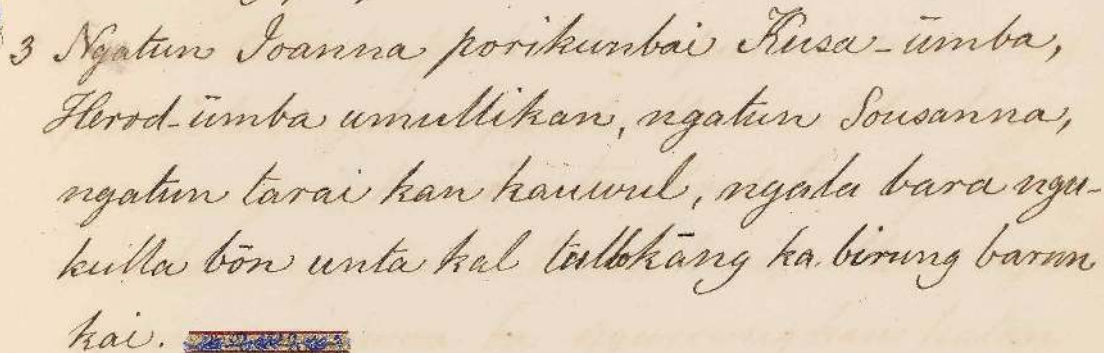 3 Ngatun Joanna porikunbai Kusa-ümba,
Herod-ümba umullikan, ngatun Sousanna,
ngatun tarai kan kauwul, ngala bara ngu-
killa bōn unta kal tullokāng ka birung barun
kai.